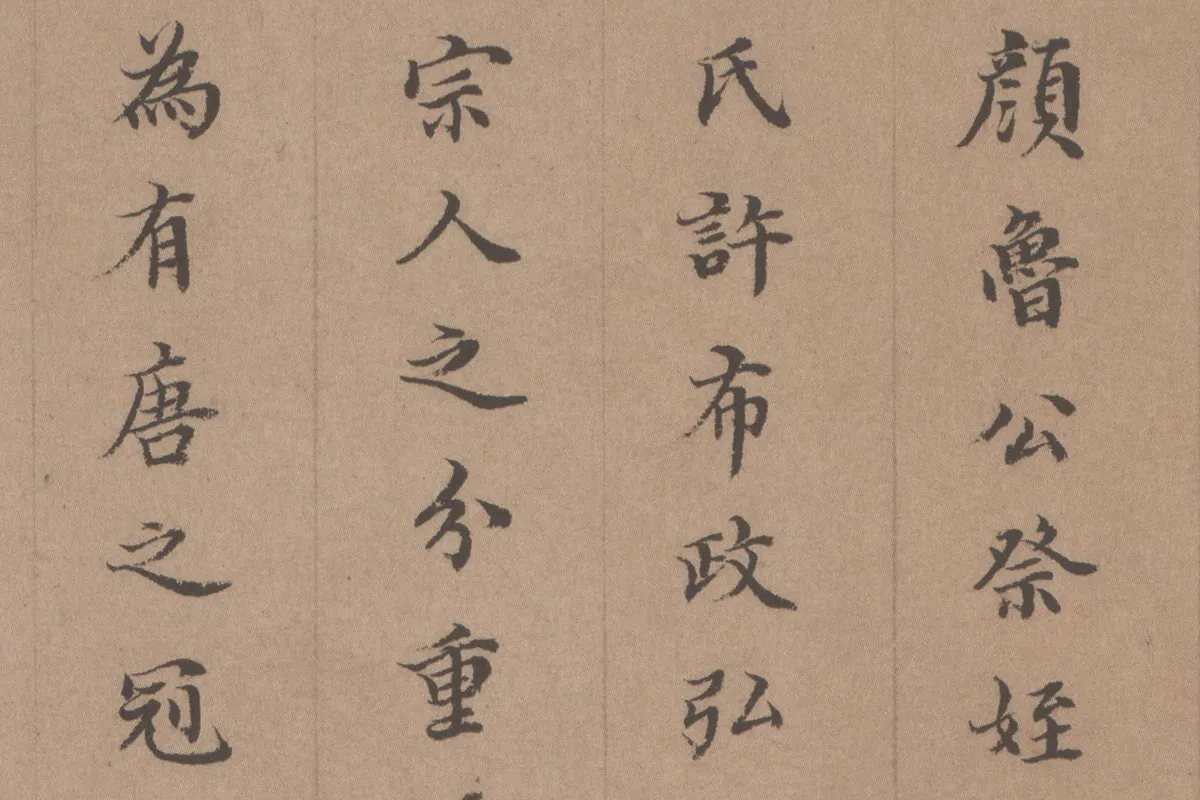 顔魯公祭姪
氏許布政弘
宗人之分重
為有唐之冠